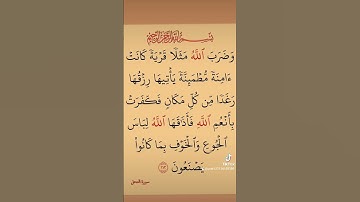 بِسْمِ اللَّهِ الرَّحْمَٰنِ الرَّحِيمِ
وَضَرَبَ ٱللَّهُ مَثَلًا قَرْيَةً كَانَتْ
ءَامِنَةً مُّطْمَئِنَّةً يَأْتِيهَا رِزْقُهَا
رَغَدًا مِّن كُلِّ مَكَانٍ فَكَفَرَتْ
بِأَنْعُمِ ٱللَّهِ فَأَذَٰقَهَا ٱللَّهُ لِبَاسَ
ٱلْجُوعِ وَٱلْخَوْفِ بِمَا كَانُوا۟
يَصْنَعُونَ ١١٢
سورة النحل
TikTok